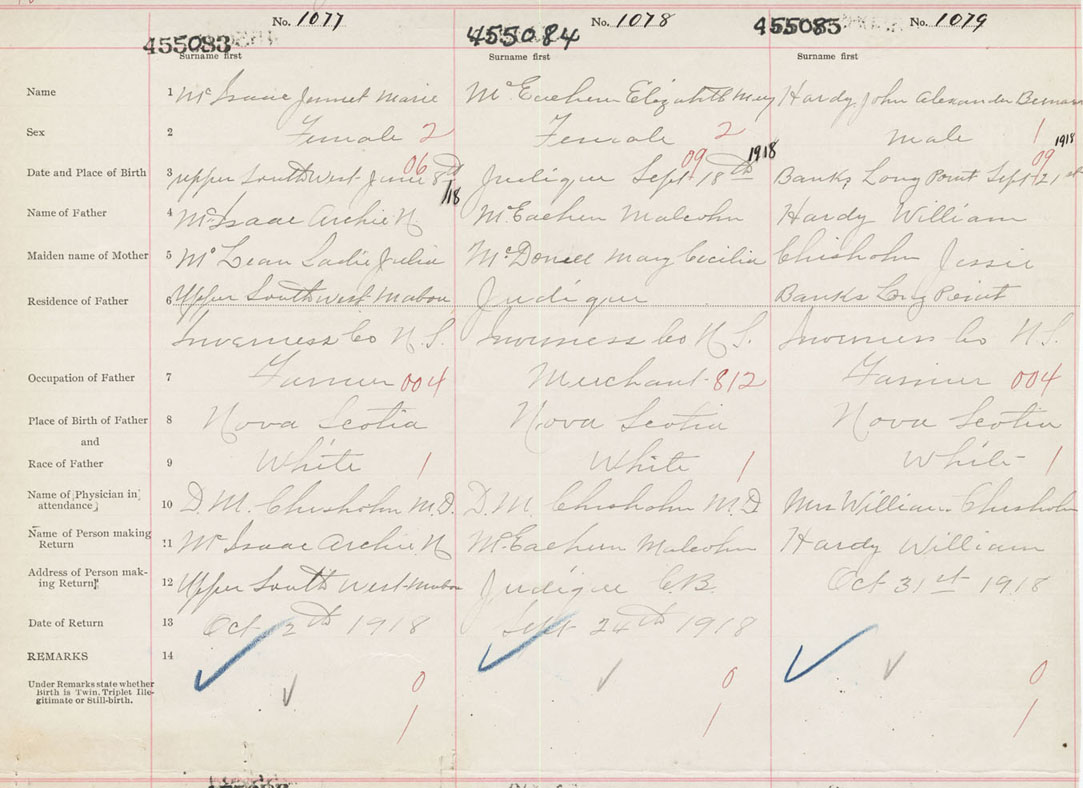 No. 1077 No. 1078 No. 1079
455083 455084 455085
Surname first Surname first Surname first
Name 1 McIsaac Jennet Marie McEachern Elizabeth Mary Hardy John Alexander Bernard
Sex 2 Female 2 Female 2 Male 1
06 09 1918 09 1918
Date and Place of Birth 3 Upper South West June 8th /18 Judique Sept 18th Banks Long Point Sept 21st
Name of Father 4 McIsaac Archie N McEachern Malcolm Hardy William
Maiden name of Mother 5 McLean Sadie Julia McDonell Mary Cecilia Chisholm Jessie
Residence of Father 6 Upper Southwest Mabou Judique Banks Long Point
Inverness Co N.S. Inverness Co N.S. Inverness Co. N.S.
Occupation of Father 7 Farmer 004 Merchant 812 Farmer 004
Place of Birth of Father 8 Nova Scotia Nova Scotia Nova Scotia
and
Race of Father 9 White 1 White 1 White 1
Name of Physician in
attendance 10 D.M. Chisholm M.D. D.M. Chisholm M.D Mrs William Chisholm
Name of Person making
Return 11 McIsaac Archie N McEachern Malcolm Hardy William
Address of Person mak-
ing Return 12 Upper South West Mabou Judique C.B. Oct 31st 1918
Date of Return 13 Oct 2th 1918 Sept 24th 1918
REMARKS 14
Under Remarks state whether 0 0 0
Birth is Twin, Triplet Ille-
gitimate or Still-birth.
1 1 1